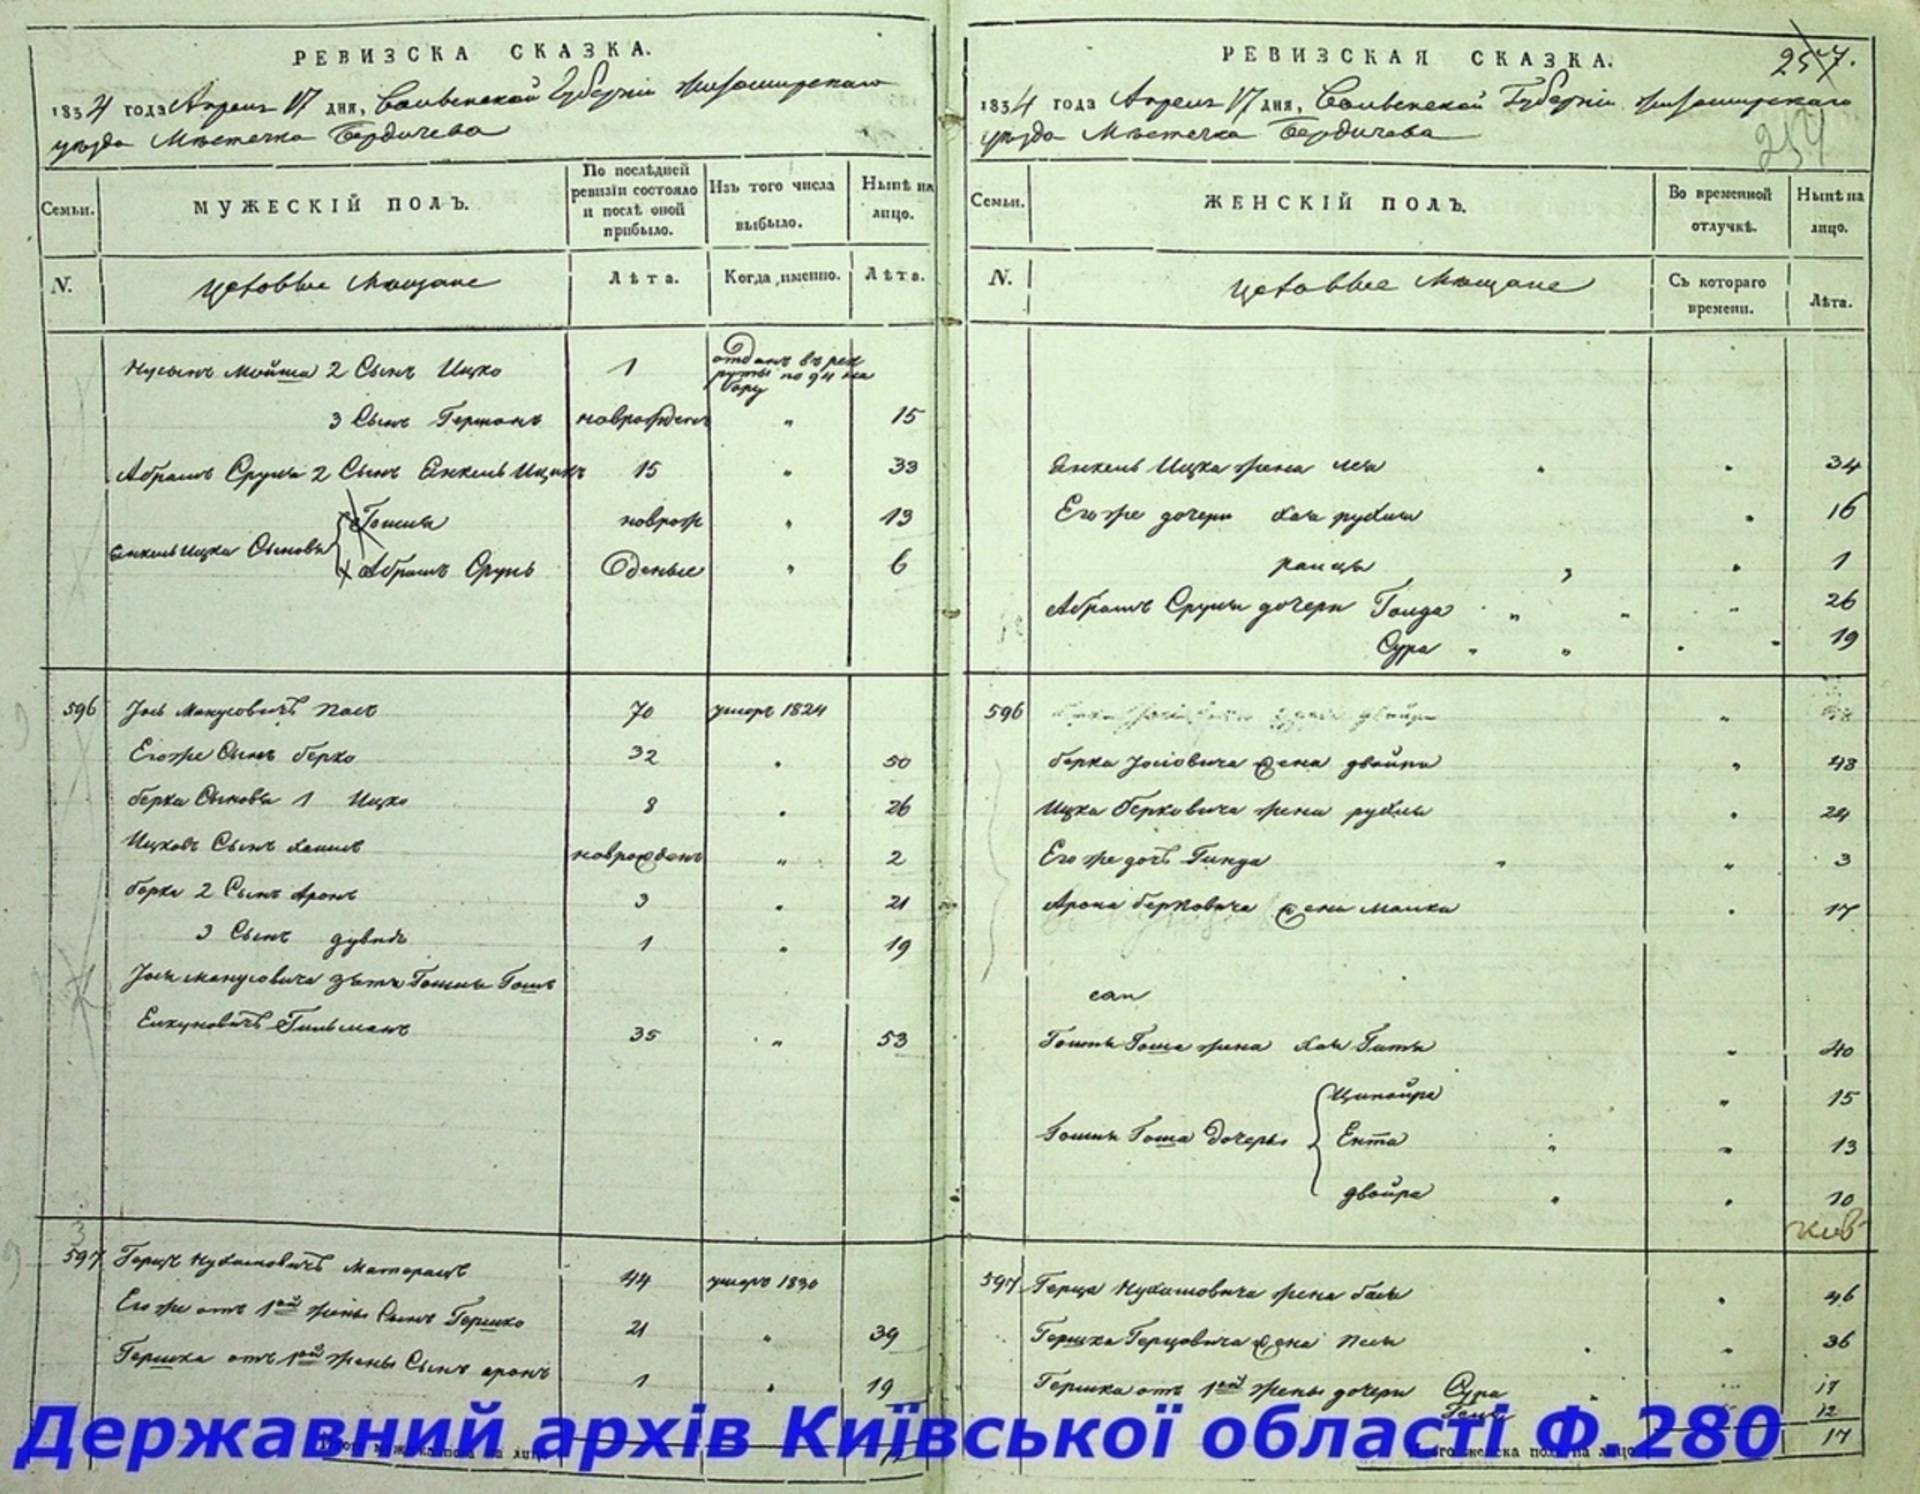 РЕВИЗСКА СКАЗКА.
1834 года Апреля 17 дня, Волынской Губерніи Житомирскаго
уѣзда Мѣстечка Бердичева
Семьи.
МУЖЕСКІЙ ПОЛЪ.
По послѣдней ревизіи состояло и послѣ оной прибыло.
Изъ того числа выбыло.
Нынѣ на лицо.
N.
Цеховые Мещане
Лѣта.
Когда именно.
Лѣта.
Нусынъ Мойша 2 Сынъ Ицко 1 отданъ въ рек
руты по 94 на
бору
3 Сынъ Гершонъ новрожденъ " 15
Абрамъ Срулы 2 Сынъ Янкель Ицикъ 15 " 33
новрож " 13
Янкель Ицка Сыновья
Абрамъ Сруль денные " 6
596 Іось Манусовичъ умеръ 1824 70
Егоже Сынъ Берко 32 50
Берка Сыновья 1 Ицко 8 26
Ицковъ Сынъ новрожденъ " 2
Берка 2 Сынъ Аронъ 3 21
3 Сынъ Дувидъ 1 19
Іося Манусовича зять
Гильманъ 35 " 53
597 Герцъ Нухимовичъ 44 умеръ 1830
Егоже отъ 1ой жены Сынъ Гершко 21 " 39
Гершка отъ 1ой жены Сынъ Аронъ 1 19
Итого мужеска пола на лицо
РЕВИЗСКАЯ СКАЗКА.
257.
254
1834 года Апреля 17 дня, Волынской Губерніи Житомирскаго
уѣзда Мѣстечка Бердичева
Семьи.
ЖЕНСКІЙ ПОЛЪ.
Во временной отлучкѣ.
Нынѣ на лицо.
N.
Цеховые Мещане
Съ котораго времени.
Лѣта.
Янкель Ицка жена Лея 34
Егоже дочери Хая Рухля 16
1
Абрамъ Срулы дочери Голда 26
Сура 19
596
Берка Іосіовича жена Двойра " 48
Ицка Берковича жена Рухля 24
Егоже дочь Гинда " 3
Арона Берковича жена Малка 17
жена Хая Гитля 40
Ципойра " 15
дочеры Ента 13
Двойра 10
597 Герца Нухимовича жена Бася 46
Гершка Герцовича жена Песя 36
Гершка отъ 1ой жены дочери Сура 17
12
Итого женска пола на лицо 17
Державний архів Київської області Ф.280